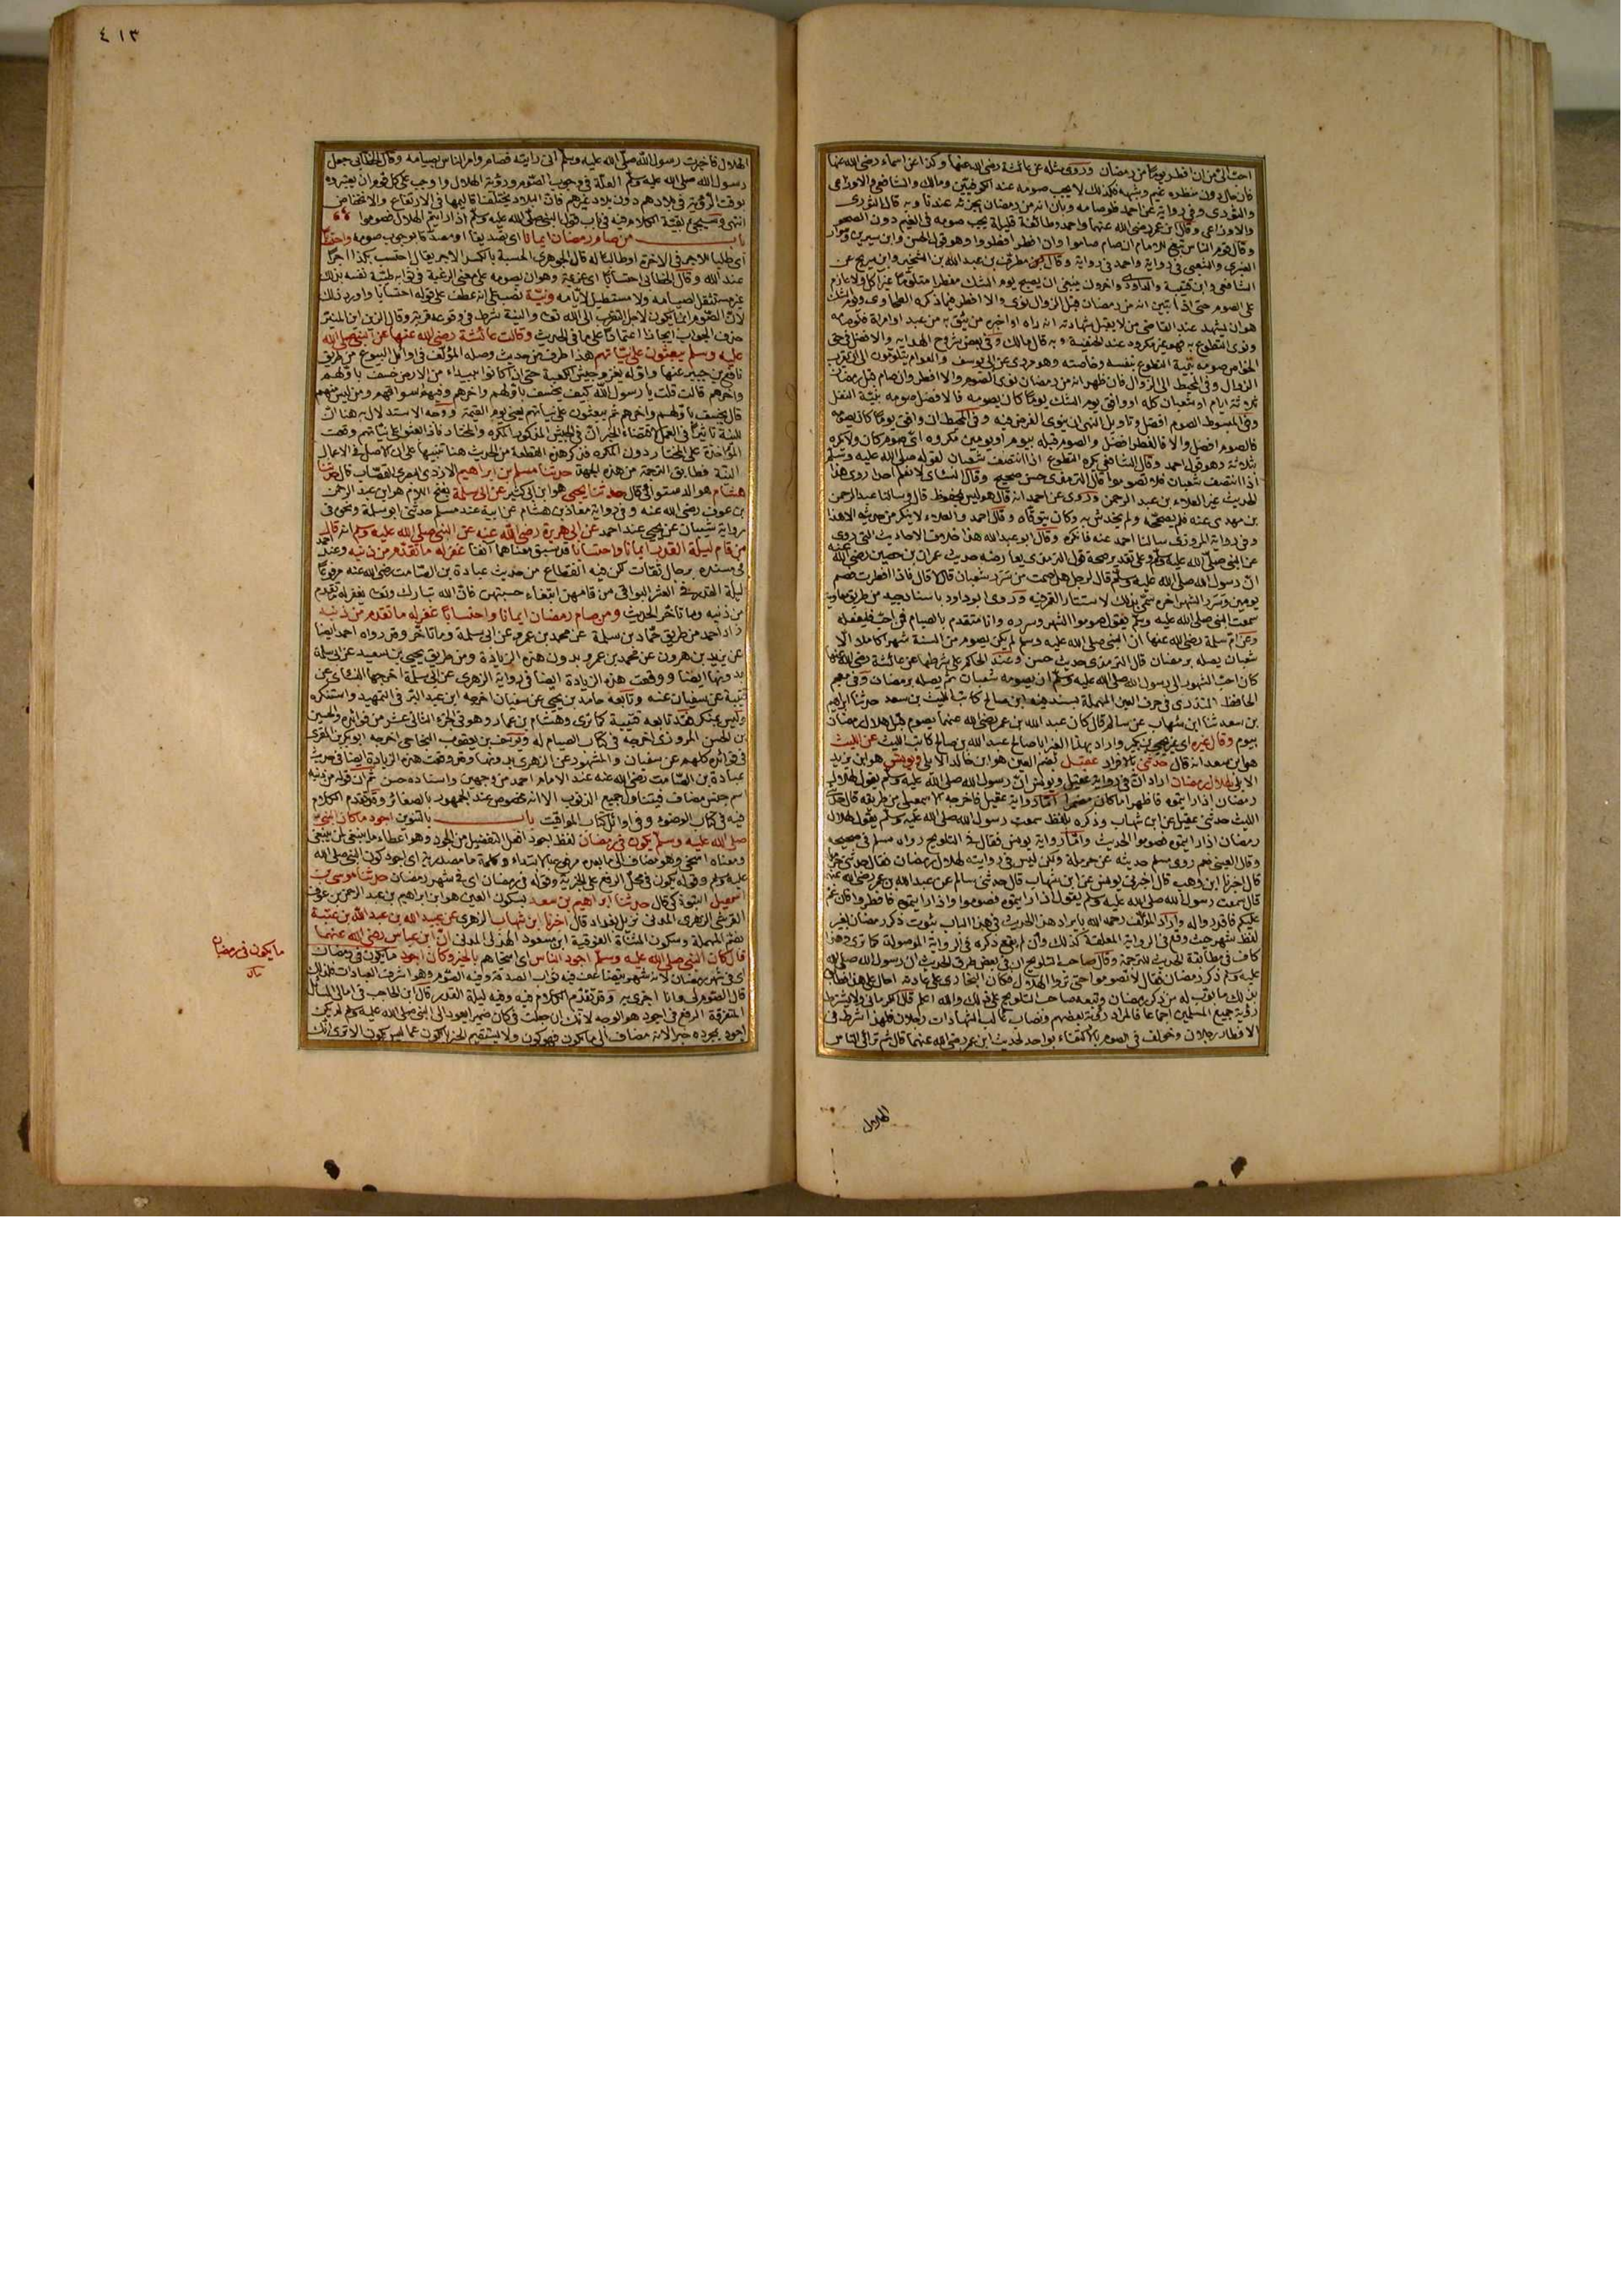 ٤١٣
احب الي من ان افطر يوما من رمضان وروى مثله عن عائشة رضى الله عنها وكذا عن اسماء رضى الله عنها
كان حال دون منظره غيم وشبهه فكذلك لا يجب صومه عند الكوفيين ومالك والشافعى والاوزاعى
والثورى وفى رواية عن احمد فلو صامه وبان انه من رمضان يجزئه عندنا وبه قال الثورى
والاوزاعى وقال ابن عمر رضى الله عنهما واحمد وطائفة قليلة يجب صومه فى الغيم دون الصحو
وقال قوم الناس تبع للامام ان صام صاموا وان افطر افطروا وهو قول الحسن وابن سيرين وسوار
العنبرى والشعبى فى رواية واحمد فى رواية وقال مطرف بن عبد الله بن الشخير وابن سريج عن
الشافعى وابن قتيبة والداودى واخرون ينبغى ان يصبح يوم الشك مفطرا متلوما غير اكل ولا عازم
على الصوم حتى اذا تبين انه من رمضان قبل الزوال نوى والا افطر فيما ذكره الطحاوى ويوم الشك
هو ان يشهد عند القاضى من لا يقبل شهادته انه راه او اخبره من يثق به من عبد او امراة فلو صامه
ونوى التطوع به فهو غير مكروه عند الحنفية وبه قال مالك وفى بعض شروح الهداية والافضل فى حق
الخواص صومه بنية التطوع بنفسه وخاصته وهو مروى عن ابى يوسف والعوام يتلومون الى ان يقرب
الزوال وفى المحيط الى الزوال فان ظهر انه من رمضان نوى الصوم والا افطر وان صام قبل رمضان
ثلاثة ايام او شعبان كله او وافق يوم الشك يوما كان يصومه فالافضل صومه بنية النفل
وفى المبسوط الصوم افضل وتاويل النهى ان ينوى الفرض فيه وفى المحيط ان وافق يوما كان يصومه
فالصوم افضل والا فالفطر افضل والصوم قبله بيوم او يومين مكروه اى صوم كان ولا يكره
بثلاثة وهو قول احمد وقال الشافعى يكره التطوع اذا انتصف شعبان لقوله صلى الله عليه وسلم
اذا انتصف شعبان فلا تصوموا قال الترمذى حسن صحيح وقال النسائى لا نعلم احدا روى هذا
الحديث غير العلاء بن عبد الرحمن وروى عن احمد انه قال هو ليس بمحفوظ قال وسالنا عبد الرحمن
بن مهدى عنه فلم يصححه ولم يحدثنى به وكان يتوقاه وقال احمد والعلاء لا ينكر من حديثه الا هذا
وفى رواية المروزى سالنا احمد عنه فانكره وقال ابو عبد الله هذا خلاف الاحاديث التى روى
عن النبى صلى الله عليه وسلم وعلى تقدير صحة قول الترمذى يعارضه حديث عمران بن حصين رضى الله عنه
ان رسول الله صلى الله عليه وسلم قال لرجل هل صمت من سرر شعبان قال لا قال فاذا افطرت فصم
يومين وسرر الشهر اخره سمى بذلك لاستتار القمر فيه وروى ابو داود باسناد جيد من طريق معاوية
سمعت النبى صلى الله عليه وسلم يقول صوموا الشهر وسرره وانا متقدم بالصيام فمن احب فليفعله
وعن ام سلمة رضى الله عنها ان النبى صلى الله عليه وسلم لم يكن يصوم من السنة شهرا كاملا الا
شعبان يصله برمضان قال الترمذى حديث حسن وعند الحاكم على شرطهما عن عائشة رضى الله عنها
كان احب الشهور الى رسول الله صلى الله عليه وسلم ان يصومه شعبان ثم يصله برمضان وفى معجم
الحافظ المنذرى فى حرف العين المهملة بسند فيه ابن صالح كاتب الليث بن سعد حدثنا ابراهيم
بن سعد ثنا ابن شهاب عن سالم قال كان عبد الله بن عمر رضى الله عنهما يصوم قبل هلال رمضان
بيوم وقال غيره اى غير يحيى بن بكير واراد بهذا الغير ابا صالح عبد الله بن صالح كاتب الليث عن الليث
هو ابن سعد انه قال حدثنى بالافراد عقيل بضم العين هو ابن خالد الايلى ويونس هو ابن يزيد
الايلى لهلال رمضان اراد ان فى رواية عقيل ويونس ان رسول الله صلى الله عليه وسلم يقول لهلال
رمضان اذا رايتموه فاظهر ما كان مضمرا اما رواية عقيل فاخرجه الاسمعيلى من طريقه قال حدثنى
الليث حدثنى عقيل عن ابن شهاب وذكره بلفظ سمعت رسول الله صلى الله عليه وسلم يقول لهلال
رمضان اذا رايتموه فصوموا الحديث واما رواية يونس فقال فى التلويح رواه مسلم فى صحيحه
وقال العينى نعم روى مسلم حديثه عن حرملة ولكن ليس فى روايته لهلال رمضان فقال حدثنى حرملة
قال اخبرنا ابن وهب قال اخبرنى يونس عن ابن شهاب قال حدثنى سالم عن عبد الله بن عمر رضى الله عنه
قال سمعت رسول الله صلى الله عليه وسلم يقول اذا رايتموه فصوموا واذا رايتموه فافطروا فان غم
عليكم فاقدروا له واراد المؤلف رحمه الله بايراد هذا الحديث فى هذا الباب ثبوت ذكر رمضان بغير
لفظ شهر حيث وقع فى الرواية المعلقة كذلك وان لم يقع ذكره فى الرواية الموصولة كما ترى وهذا
كاف فى مطابقة الحديث للترجمة وقال صاحب التلويح ان فى بعض طرق الحديث ان رسول الله صلى الله
عليه وسلم ذكر رمضان فقال لا تصوموا حتى تروا الهلال فكان البخارى على عادته احال على هذا فطابق
بذلك ما بوب له من ذكر رمضان وتبعه صاحب التلويح على ذلك والله اعلم قال الكرمانى ولا يشترط
رؤية جميع المسلمين اجماعا فالمراد رؤية بعضهم ونصاب غالب الشهادات رجلان فلهذا اشترط فى
الافطار رجلان وخولف فى الصوم بالاكتفاء بواحد لحديث ابن عمر رضى الله عنهما قال ثم ترائى الناس
الهلال
الهلال فاخبرت رسول الله صلى الله عليه وسلم انى رايته فصام وامر الناس بصيامه وقال الخطابى جعل
رسول الله صلى الله عليه وسلم العلة فى وجوب الصوم ورؤية الهلال واوجب على كل قوم ان يعتبروه
بوقت الرؤية فى بلادهم دون بلاد غيرهم فان البلاد يختلف اقاليمها فى الارتفاع والانخفاض
انتهى وسيجئ بقية الكلام فيه فى باب قول النبى صلى الله عليه وسلم اذا رايتم الهلال فصوموا
باب من صام رمضان ايمانا اى تصديقا او مصدقا بوجوب صومه واحتسابا
اى طلبا للاجر فى الاخرة او طالبا له قال الجوهرى الحسبة بالكسر الاجر يقال احتسب بكذا اجرا
عند الله وقال الخطابى احتسابا اى عزيمة وهو ان يصومه على معنى الرغبة فى ثوابه طيبة نفسه بذلك
غير مستثقل لصيامه ولا مستطيل لايامه ونية نصب على انه عطف على قوله احتسابا واورد ذلك
لان الصوم انما يكون لاجل التقرب الى الله تعالى والنية شرط فى وقوعه قربة وقال الزين ابن المنير
حذف الجواب ايجازا اعتمادا على ما فى الحديث وقالت عائشة رضى الله عنها عن النبى صلى الله
عليه وسلم يبعثون على نياتهم هذا طرف من حديث وصله المؤلف فى اوائل البيوع من طريق
نافع بن جبير عنها واوله يغزو جيش الكعبة حتى اذا كانوا ببيداء من الارض خسف باولهم
واخرهم قالت قلت يا رسول الله كيف يخسف باولهم واخرهم وفيهم اسواقهم ومن ليس منهم
قال يخسف باولهم واخرهم ثم يبعثون على نياتهم يعنى يوم القيمة ووجه الاستدلال به هنا ان
للنية تاثيرا فى العمل لاقتضاء الخبر ان فى الجيش المذكور المكره والمختار فاذا بعثوا على نياتهم وقعت
المؤاخذة على المختار دون المكره فذكر هذه القطعة من الحديث هنا تنبيها على ان الاصل فى الاعمال
النية فطابق الترجمة من هذه الجهة حدثنا مسلم بن ابراهيم الازدى البصرى القصاب قال حدثنا
هشام هو الدستوائى قال حدثنا يحيى هو ابن ابى كثير عن ابى سلمة بفتح اللام هو ابن عبد الرحمن
بن عوف رضى الله عنه وفى رواية معاذ بن هشام عن ابيه عند مسلم حدثنى ابو سلمة ونحوه فى
رواية شيبان عن يحيى عند احمد عن ابى هريرة رضى الله عنه عن النبى صلى الله عليه وسلم انه قال
من قام ليلة القدر ايمانا واحتسابا قد سبق معناهما آنفا غفر له ما تقدم من ذنبه وعند احمد
فى مسنده برجال ثقات لكن فيه انقطاع من حديث عبادة بن الصامت رضى الله عنه مرفوعا
ليلة القدر فى العشر البواقى من قامهن ابتغاء حسبتهن فان الله تبارك وتعالى يغفر له ما تقدم
من ذنبه وما تاخر الحديث ومن صام رمضان ايمانا واحتسابا غفر له ما تقدم من ذنبه
زاد احمد من طريق حماد بن سلمة عن محمد بن عمرو عن ابى سلمة وما تاخر وقد رواه احمد ايضا
عن يزيد بن هرون عن محمد بن عمرو بدون هذه الزيادة ومن طريق يحيى بن سعيد عن ابى سلمة
بدونها ايضا ووقعت هذه الزيادة ايضا فى رواية الزهرى عن ابى سلمة اخرجها النسائى عن
قتيبة عن سفيان عنه وتابعه حامد بن يحيى عن سفيان اخرجه ابن عبد البر فى التمهيد واستنكره
وليس بمنكر فقد تابعه قتيبة كما ترى وهشام بن عمار وهو فى الجزء الثانى عشر من فوائده والحسين
بن الحسن المروزى اخرجه فى كتاب الصيام له ويوسف بن يعقوب النجاحى اخرجه ابو بكر بن المقرى
فى فوائده كلهم عن سفيان والمشهور عن الزهرى بدونها وقد وقعت هذه الزيادة ايضا فى حديث
عبادة بن الصامت رضى الله عنه عند الامام احمد من وجهين واسناده حسن ثم ان قوله من ذنبه
اسم جنس مضاف فيتناول جميع الذنوب الا انه مخصوص عند الجمهور بالصغائر وقد تقدم الكلام
فيه فى كتاب الوضوء وفى اوائل كتاب المواقيت باب بالتنوين اجود ما كان النبى
صلى الله عليه وسلم يكون فى رمضان لفظ اجود افعل التفضيل من الجود وهو اعطاء ما ينبغى لمن ينبغى
ومعناه اسخى وهو مضاف الى ما بعده مرفوع بالابتداء وكلمة ما مصدرية اى اجود كون النبى صلى الله
عليه وسلم وقوله يكون فى محل الرفع على الخبرية وقوله فى رمضان اى فى شهر رمضان حدثنا موسى بن
اسمعيل التبوذكى قال حدثنا ابراهيم بن سعد بسكون العين هو ابن ابراهيم بن عبد الرحمن بن عوف
القرشى الزهرى المدنى نزيل بغداد قال اخبرنا ابن شهاب الزهرى عن عبيد الله بن عبد الله بن عتبة
بضم المهملة وسكون المثناة الفوقية ابن مسعود الهذلى المدنى ان ابن عباس رضى الله عنهما
قال كان النبى صلى الله عليه وسلم اجود الناس اى اسخاهم بالخير وكان اجود ما يكون فى رمضان
اى فى شهر رمضان لانه شهر يتضاعف فيه ثواب الصدقة وفيه الصوم وهو اشرف العبادات فلذلك
قال الصوم لى وانا اجزى به وقد تقدم الكلام فيه وفيه ليلة القدر قال ابن الحاجب فى امالى المسائل
المتفرقة الرفع فى اجود هو الوجه لانك ان جعلت فى كان ضميرا يعود الى النبى صلى الله عليه وسلم لم يكن
اجود بمجرده خبرا لانه مضاف الى ما يكون فهو كون ولا يستقيم الخبر بالكون عما ليس بكون الا ترى انك
ما يكون فى رمضان